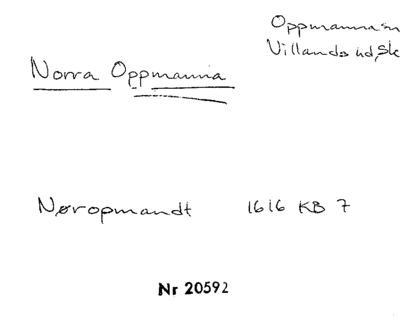 Oppmanna sn
Villands hd, Sk
Norra Oppmanna
Nøropmandt 1616 KB 7
Nr 20592